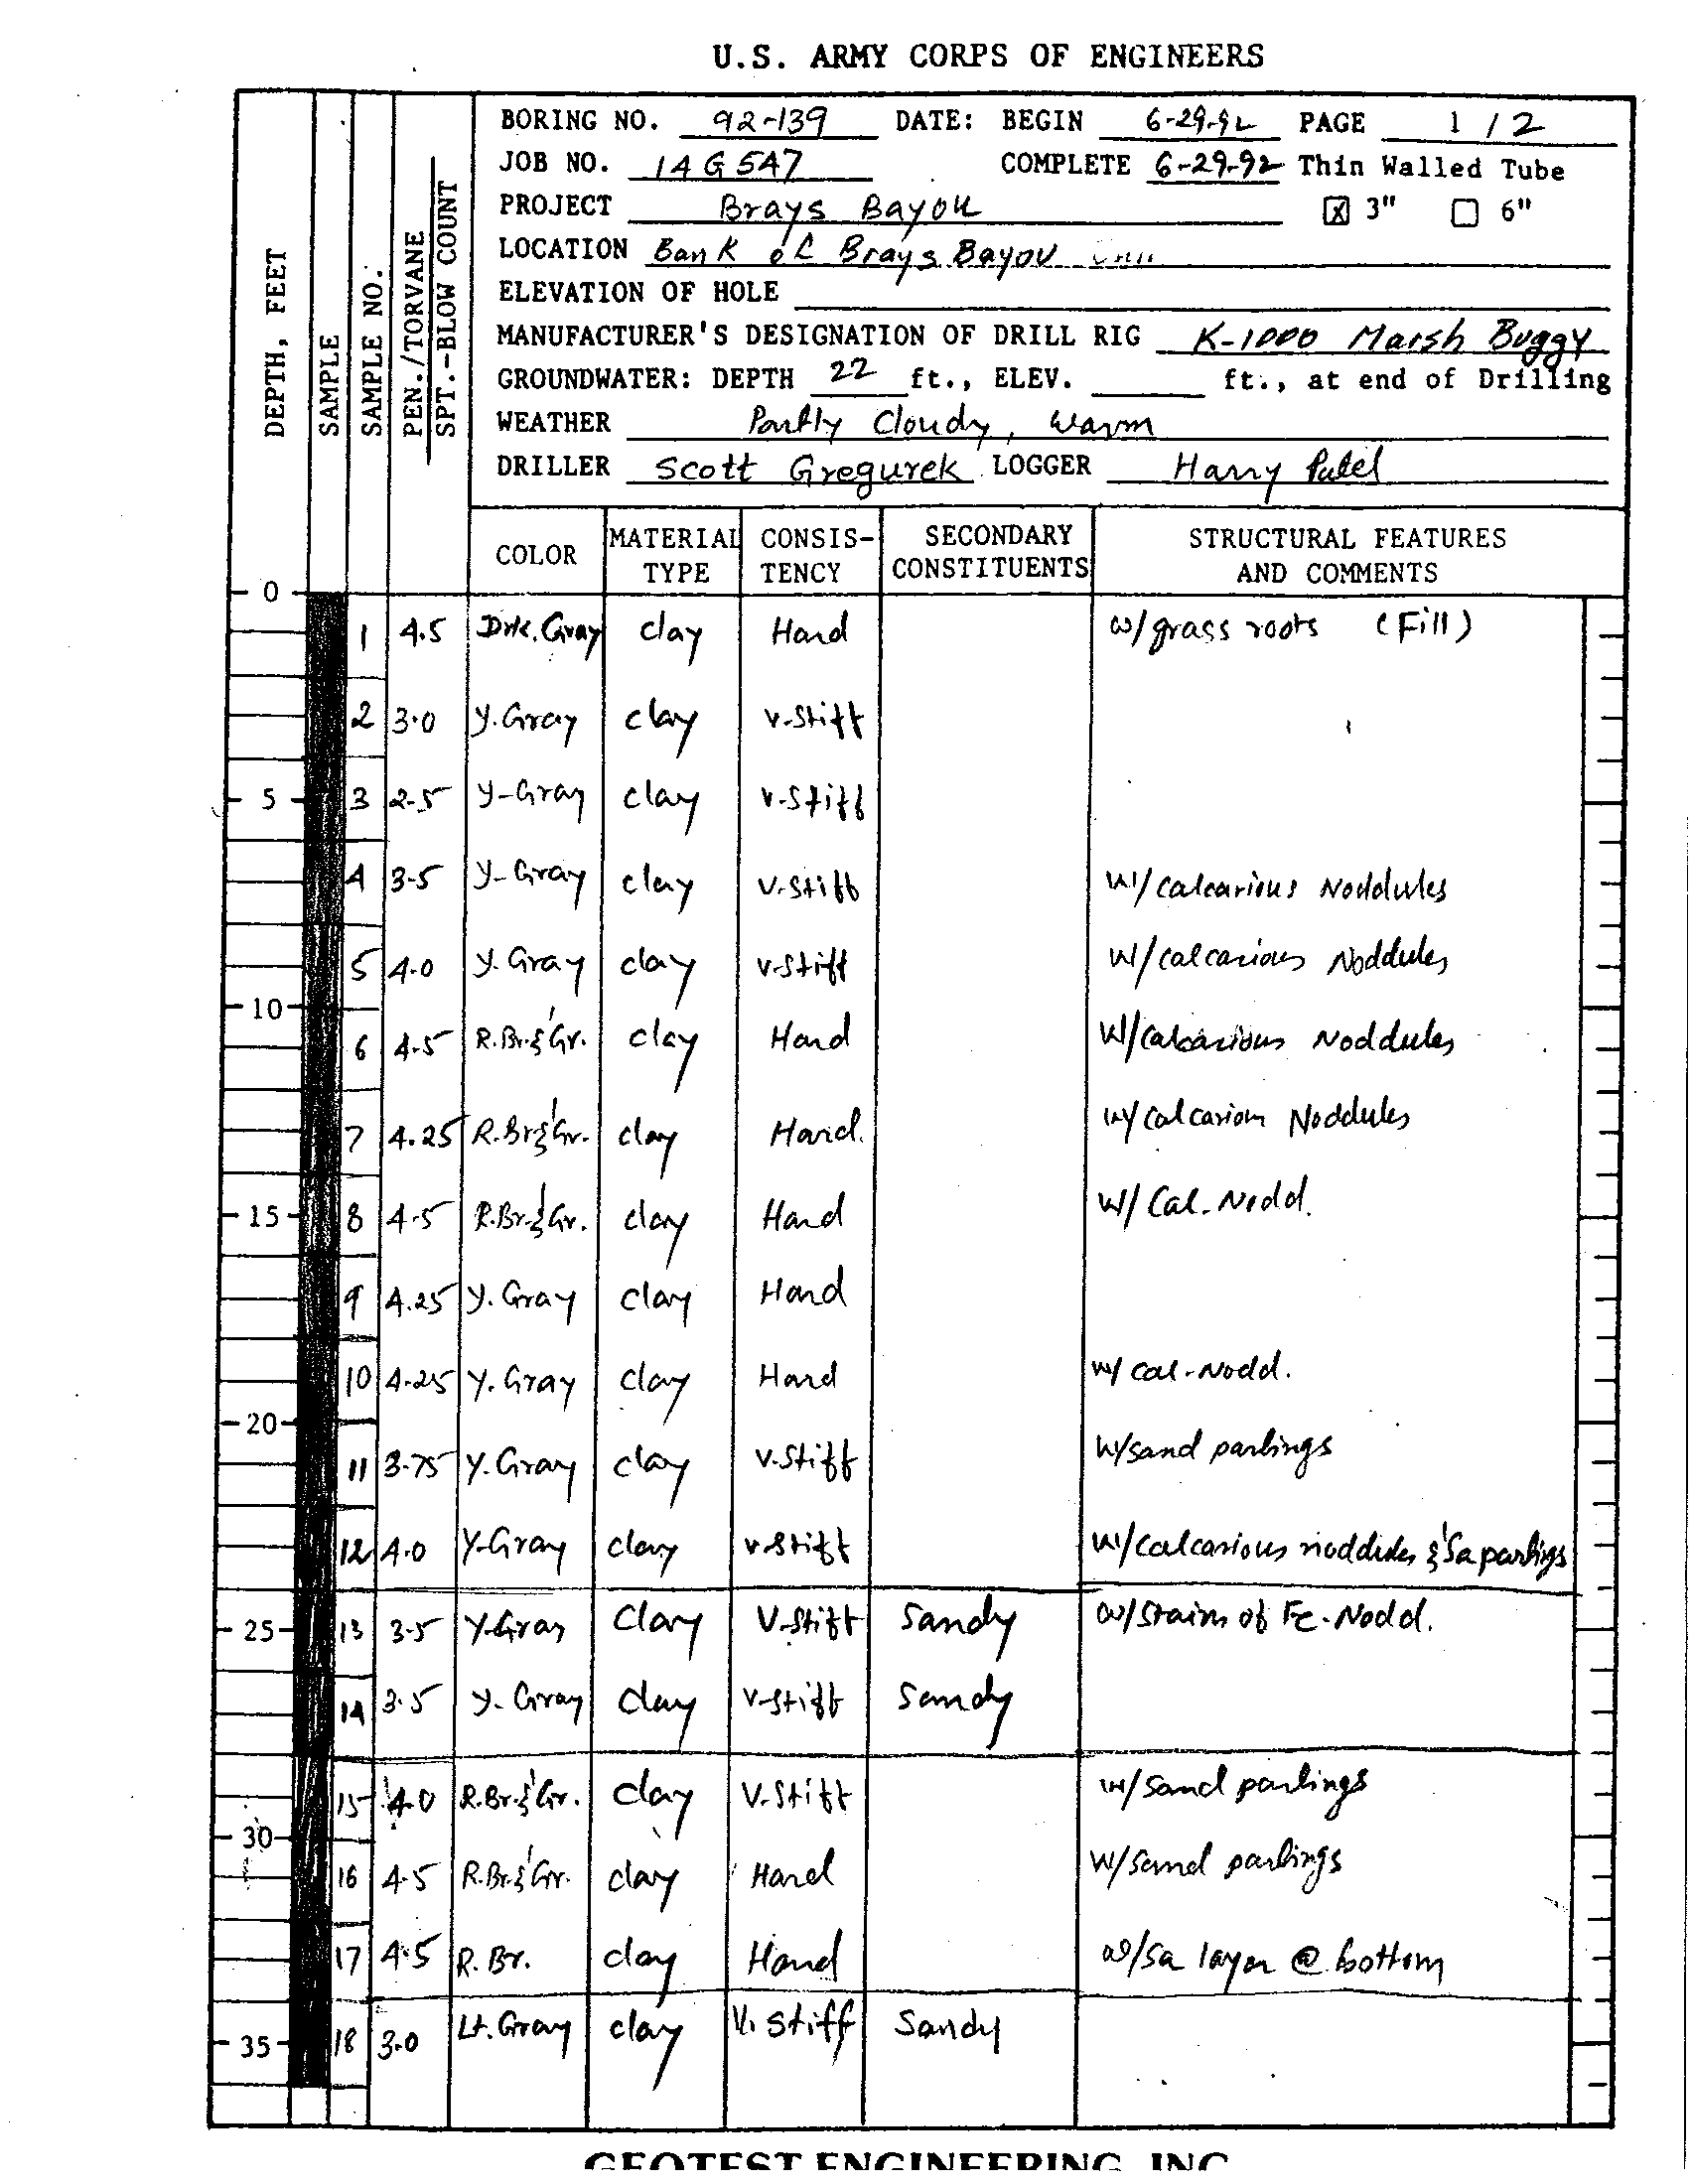 U.S. ARMY CORPS OF ENGINEERS
BORING NO. 92-139 DATE: BEGIN 6-29-92 PAGE 1 / 2
JOB NO. 14G547 COMPLETE 6-29-92 Thin Walled Tube
PROJECT Brays Bayou ☒ 3" ☐ 6"
LOCATION Bank of Brays Bayou
ELEVATION OF HOLE
MANUFACTURER'S DESIGNATION OF DRILL RIG K-1000 Marsh Buggy
GROUNDWATER: DEPTH 22 ft., ELEV. ft., at end of Drilling
WEATHER Partly Cloudy, Warm
DRILLER Scott Gregurek LOGGER Harry Patel
DEPTH, FEET
SAMPLE
SAMPLE NO.
PEN./TORVANE
SPT.-BLOW COUNT
COLOR MATERIAL TYPE CONSIS-TENCY SECONDARY CONSTITUENTS STRUCTURAL FEATURES AND COMMENTS
0
1 4.5 Drk. Gray clay Hard w/grass roots (Fill)
2 3.0 Y. Gray clay v-stiff
5 3 2-5 y-Gray clay v-stiff
4 3-5 y-Gray clay v-stiff w/calcarious Noddules
5 4.0 y. Gray clay v-stiff w/calcarious Noddules
10
6 4.5 R.Br.& Gr. clay Hard w/calcarious Noddules
7 4.25 R.Br & Gr. clay Hard. w/calcarious Noddules
15 8 4.5 R.Br.& Gr. clay Hard w/ Cal. Nodd.
9 4.25 y. Gray clay Hard
10 4.25 Y. Gray clay Hard w/ cal-Nodd.
20
11 3.75 Y. Gray clay v.stiff w/sand partings
12 4.0 Y-Gray clay v-stiff w/calcarious noddules & Sa partings
25 13 3-5 Y-Gray Clay V-stiff Sandy w/Stains of Fe-Nodd.
14 3.5 y. Gray clay v-stiff Sandy
15 4.0 R.Br.& Gr. clay V-Stiff w/sand partings
30
16 4.5 R.Br.& Gr. clay Hard w/sand partings
17 4.5 R. Br. clay Hard w/sa layer @ bottom
35 18 3.0 Lt. Gray clay V. Stiff Sandy
GEOTEST ENGINEERING, INC.